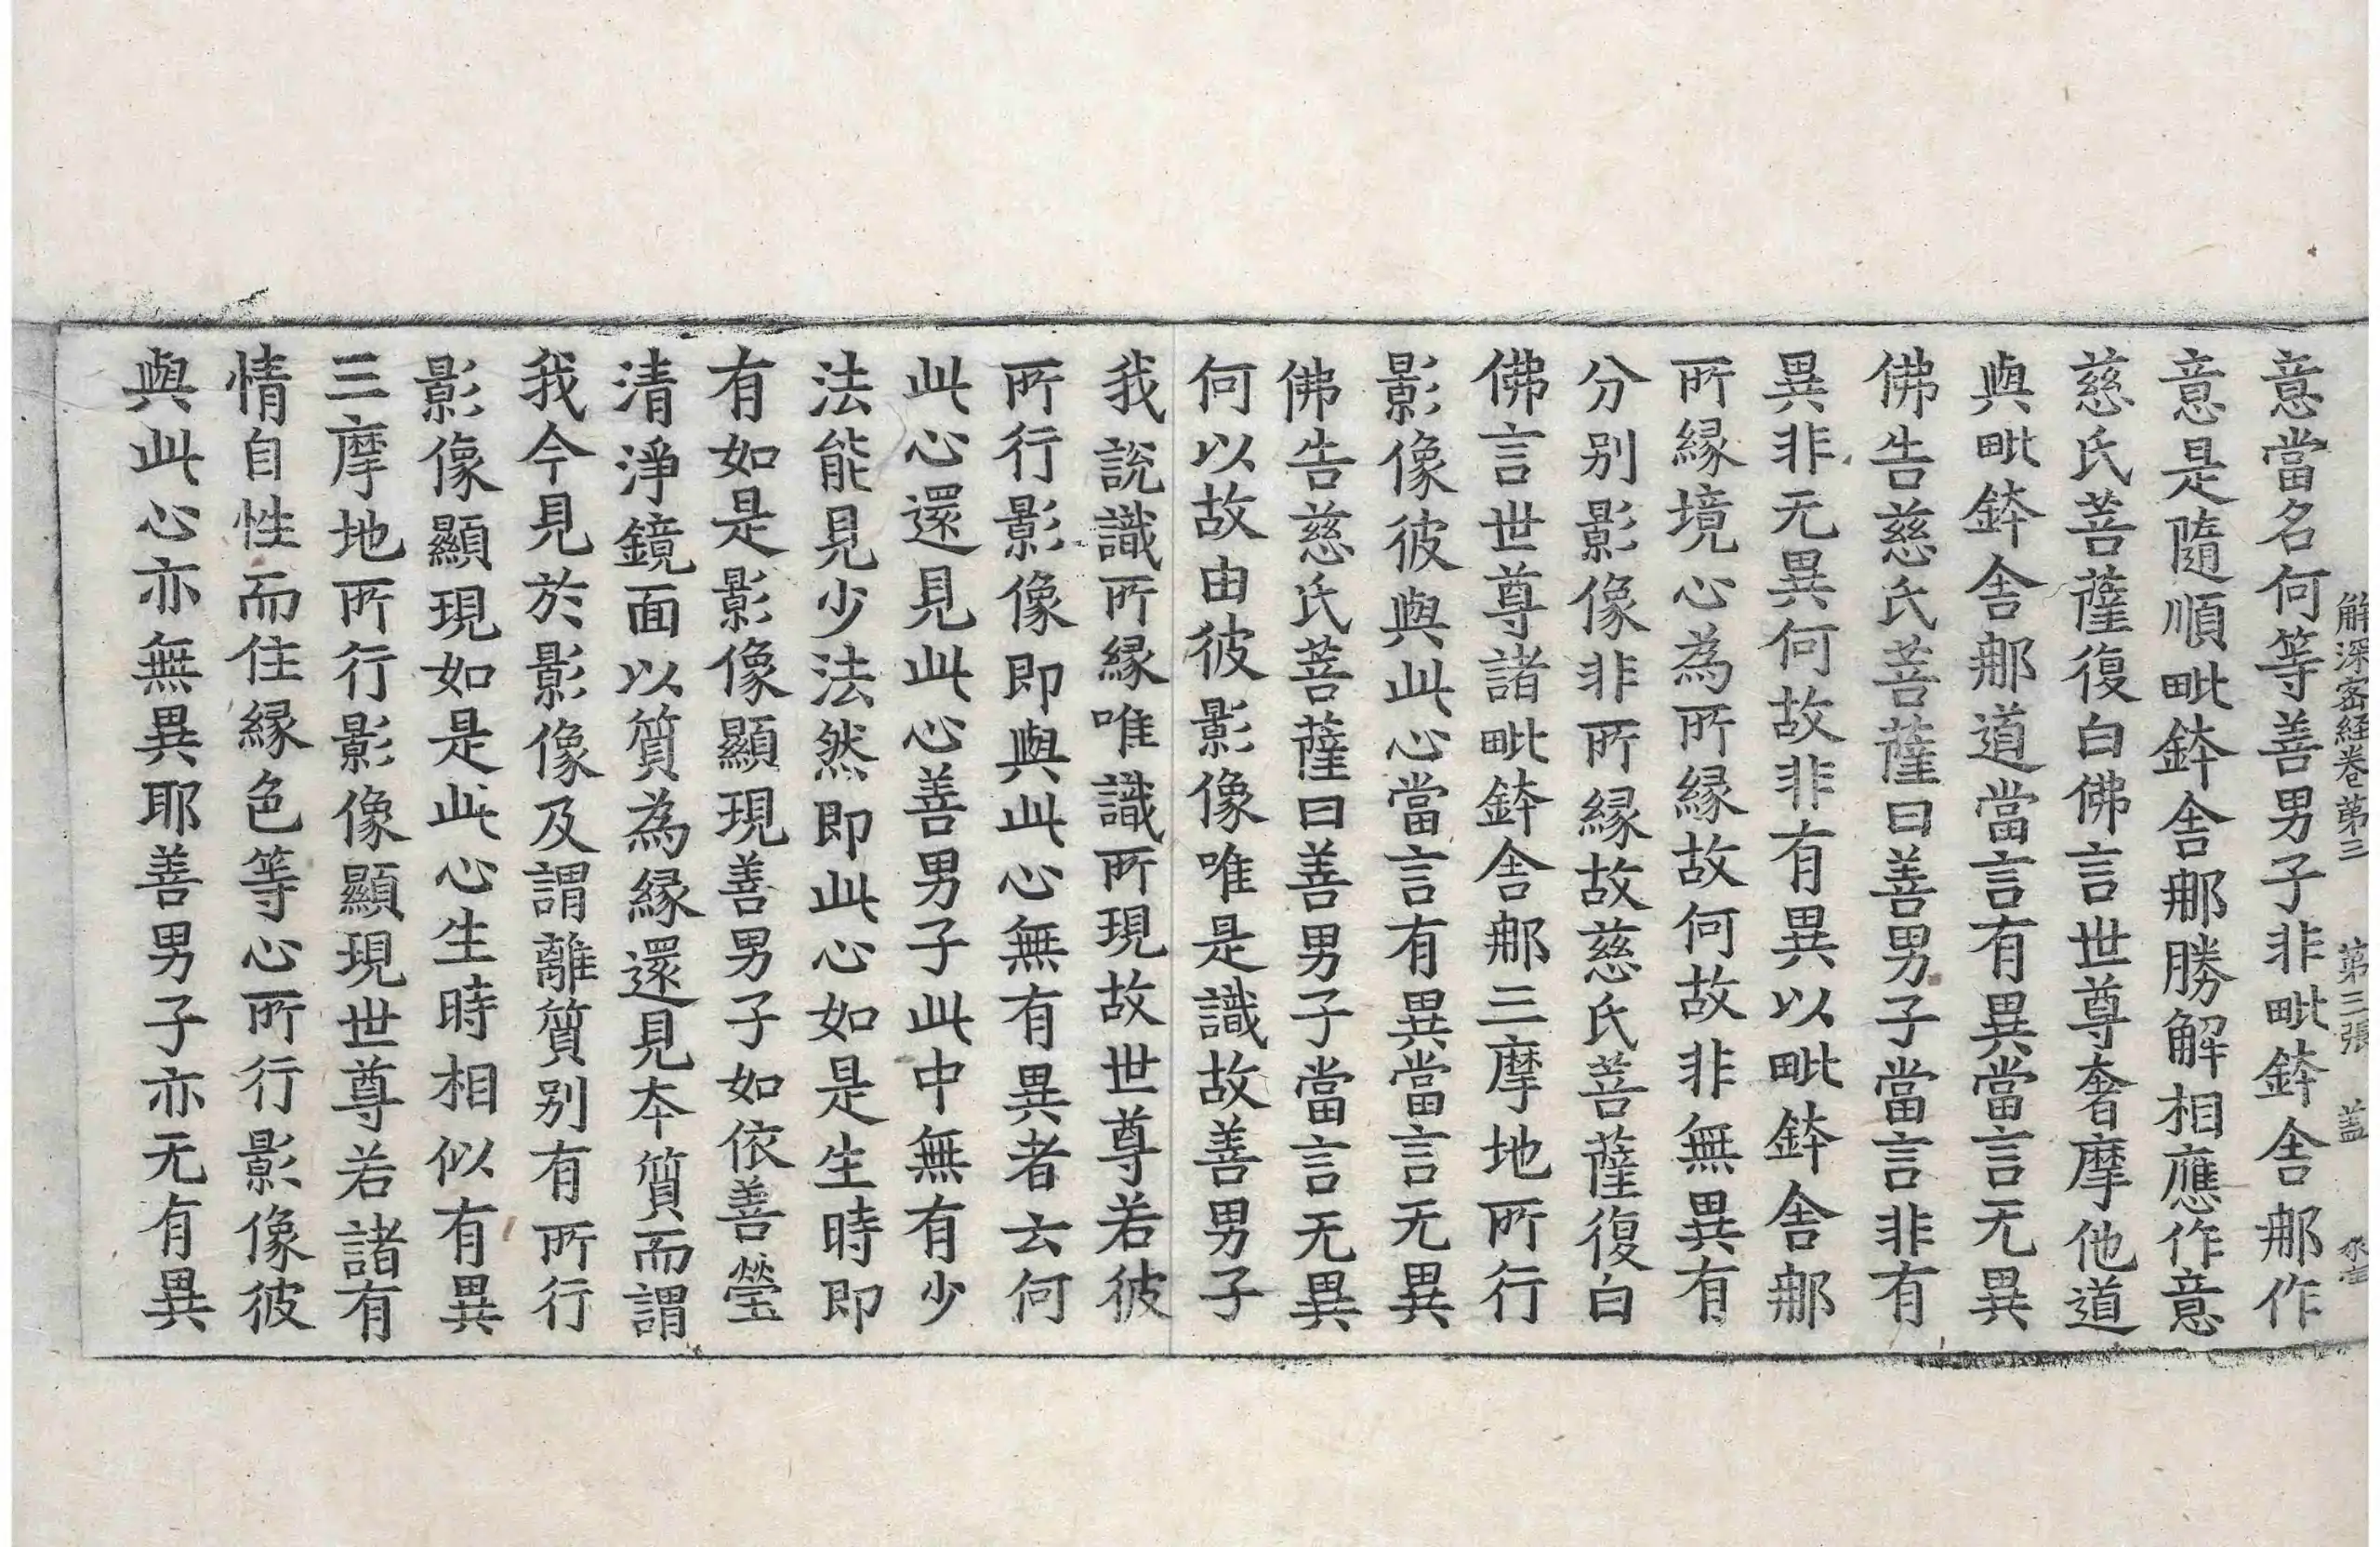 解深密經卷第三 第三張 蓋
意當名何等善男子非毗鉢舍那作
意是隨順毗鉢舍那勝解相應作意
慈氏菩薩復白佛言世尊奢摩他道
與毗鉢舍那道當言有異當言无異
佛告慈氏菩薩曰善男子當言非有
異非无異何故非有異以毗鉢舍那
所縁境心為所縁故何故非無異有
分别影像非所縁故慈氏菩薩復白
佛言世尊諸毗鉢舍那三摩地所行
影像彼與此心當言有異當言无異
佛告慈氏菩薩曰善男子當言无異
何以故由彼影像唯是識故善男子
我說識所縁唯識所現故世尊若彼
所行影像即與此心無有異者云何
此心還見此心善男子此中無有少
法能見少法然即此心如是生時即
有如是影像顯現善男子如依善瑩
清淨鏡面以質為縁還見本質而謂
我今見於影像及謂離質别有所行
影像顯現如是此心生時相似有異
三摩地所行影像顯現世尊若諸有
情自性而住縁色等心所行影像彼
與此心亦無異耶善男子亦无有異